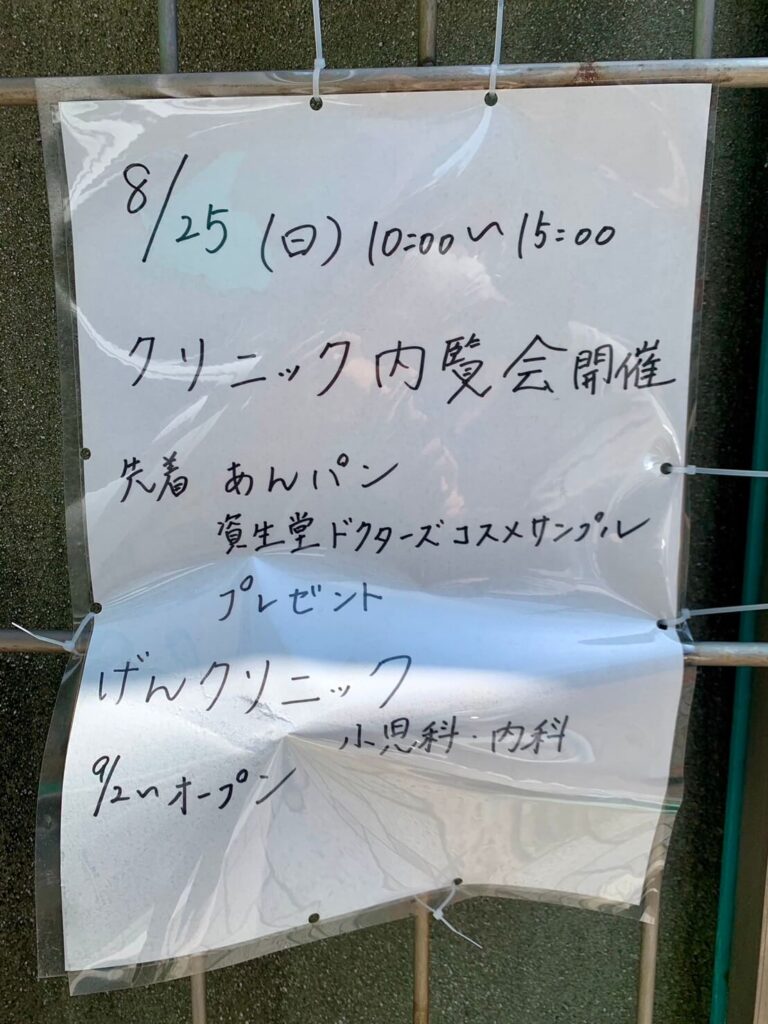 8/25 (日) 10:00〜15:00
クリニック内覧会開催
先着 あんパン
資生堂ドクターズコスメサンプル
プレゼント
げんクリニック
小児科・内科
9/2〜オープン